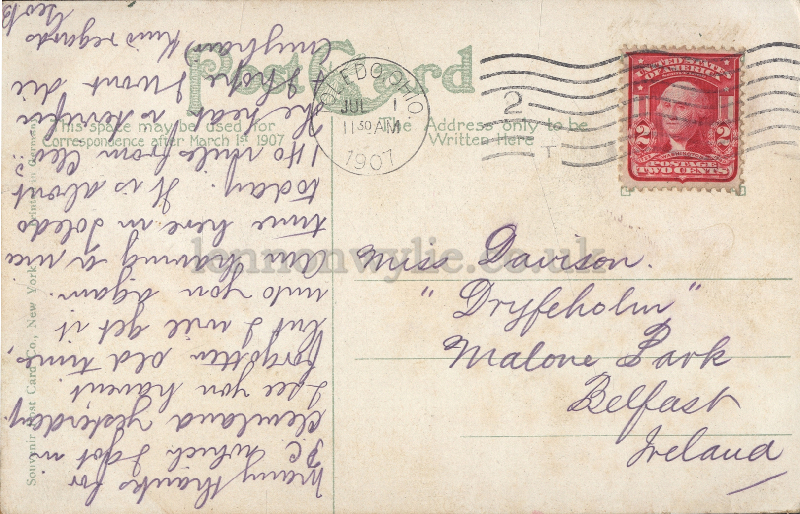 Post Card
This space may be used for
Correspondence after March 1st 1907
The Address only to be
Written Here
TOLEDO, OHIO.
JUL 1
11 30 AM
1907
2
T
UNITED STATES
OF AMERICA
2 2
WASHINGTON
POSTAGE
TWO CENTS
Miss Davison.
"Dryfeholm"
Malone Park
Belfast
Ireland
Many thanks for
P.C. which I got in
Cleveland yesterday.
I see you havent
forgotten old times,
but I will get it
into you again.
Am having a nice
time here in Toledo
today. It is about
140 miles from Clev:
The heat is terrific
& I hope I wont die
(anyhow) Kind regards
Geo
Souvenir Post Card Co., New York
lennonwylie.co.uk